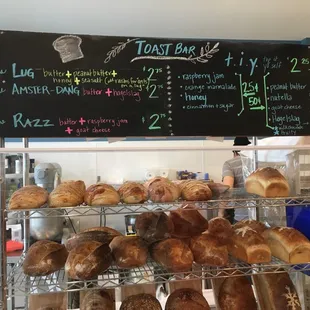 TOAST BAR
Lug butter + peanut butter +
honey + sea salt
$2.75
AMSTER-DANG butter + hagelslag
$2.75
Razz butter + raspberry jam
+ goat cheese
$2.75
t.i.y.
raspberry jam
orange marmalade
honey
cinnamon + sugar
.25¢
.50¢
2
peanut butter
nutella
goat cheese
hagelslag